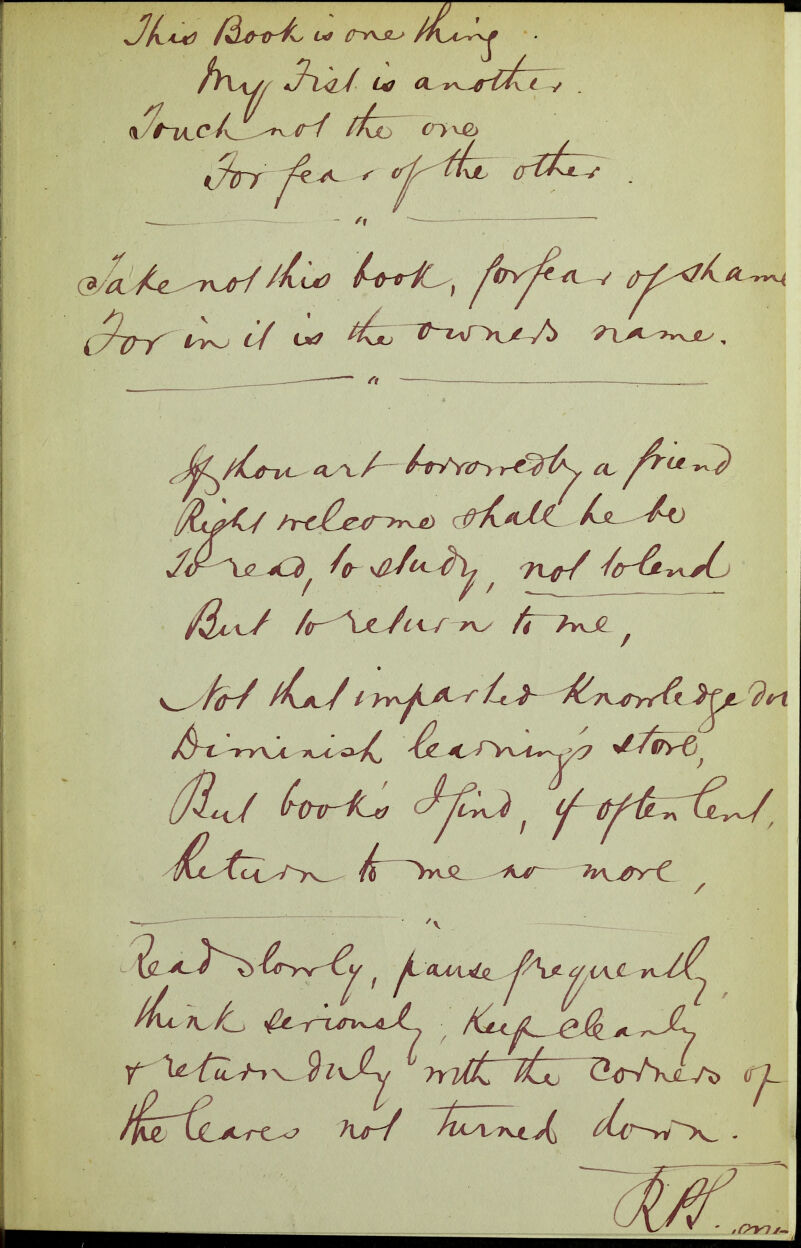 This Book is one thing.
My Fist is another.
Touch not the one
For fear of the other.
"
Take not this book, for fear of shame
For in it is the owners name.
"
If thou art borrowed by a friend
Right welcome shall he be
To read, to study, not to lend
But to return to me,
Not that imparted Knowledge doth
Diminish learning's store,
But book's I find, if often lent,
Return to me no more,
"
Read slowly, pause frequently,
think seriously, Keep cleanly
& return duly with the corners of
the leaves not turned down.